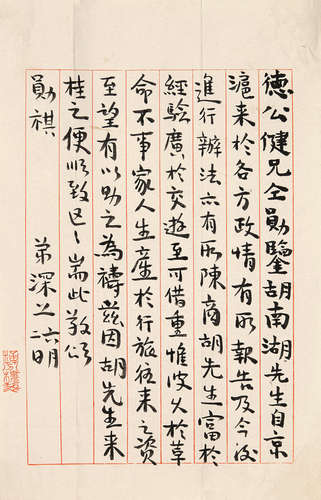 德公健兄全勛鑒胡南湖先生自京
滬来於各方政情有所報告及今後
進行辦法亦有所陳商胡先生富於
經驗廣於交遊至可借重惟彼久於革
命不事家人生產於行旅往来之資
至望有以助之為禱茲因胡先生来
桂之便順致區々耑此敬頌
勛祺
弟深上六明